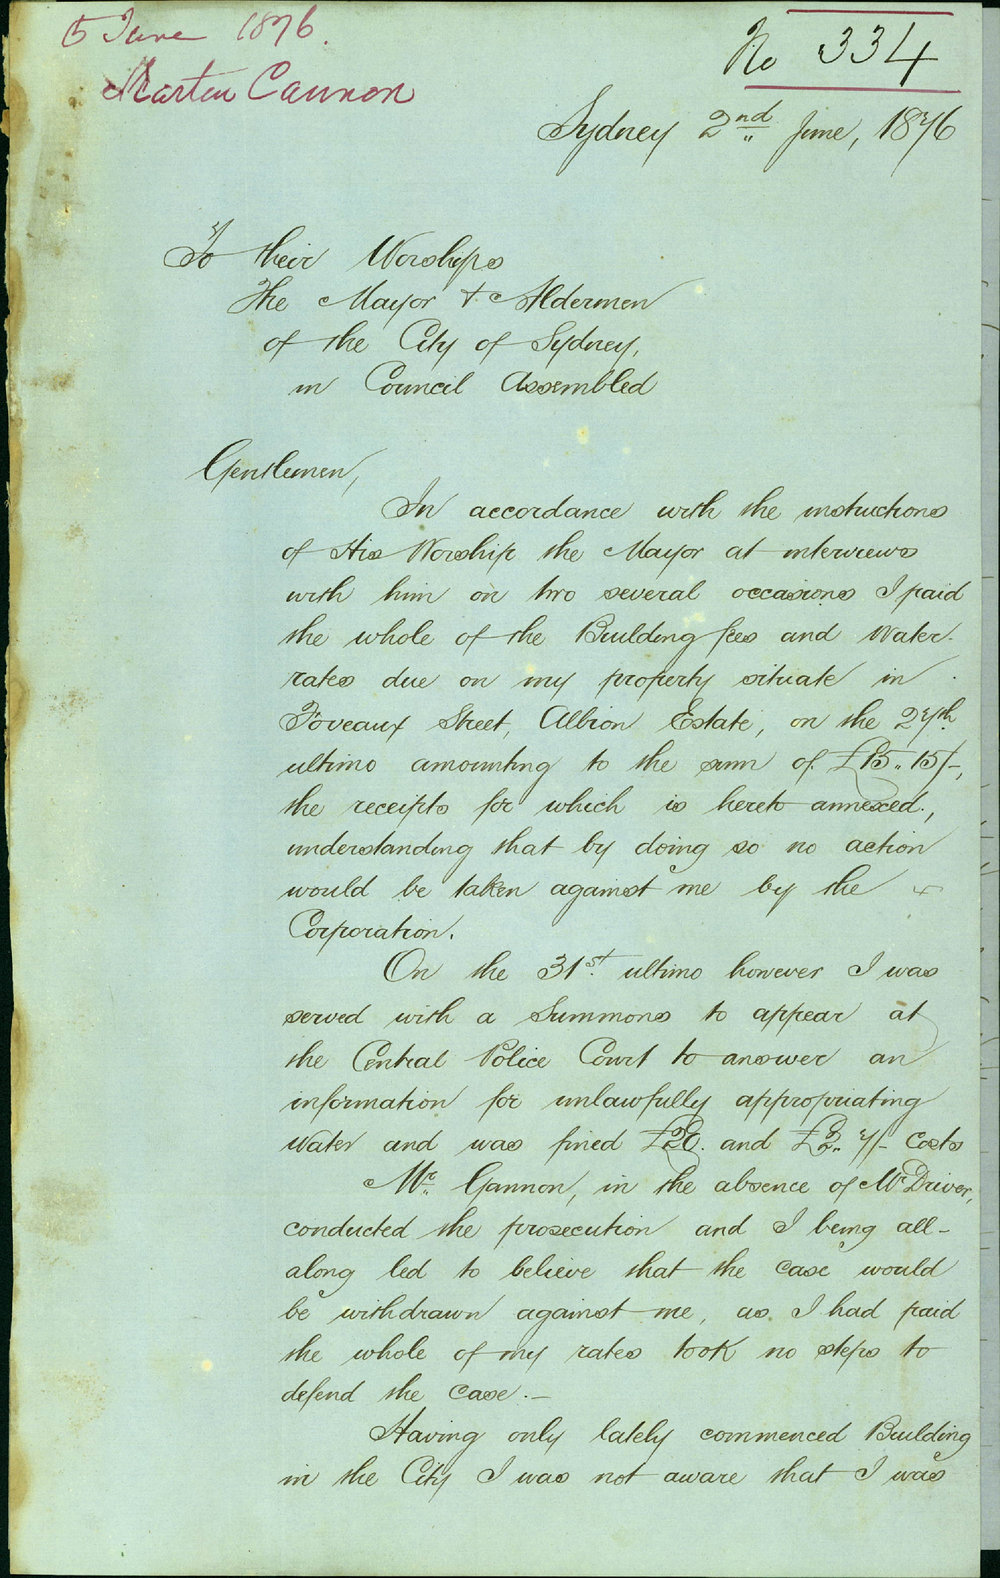 5 June 1876.
Martin Cannon
No 334
Sydney 2nd June, 1876
To their Worships
The Mayor + Aldermen
of the City of Sydney,
in Council Assembled
Gentlemen,
In accordance with the instructions
of His Worship the Mayor at interviews
with him on two several occasions I paid
the whole of the Building fees and Water
rates due on my property situate in
Foveaux Street, Albion Estate, on the 27th
ultimo amounting to the sum of £15.. 15/-,
the receipts for which is hereto annexed.,
understanding that by doing so no action
would be taken against me by the
Corporation.
On the 31st. ultimo however I was
served with a Summons to appear at
the Central Police Court to answer an
information for unlawfully appropriating
Water and was fined £20. and £2.. 7/- Costs
Mr. Gannon, in the absence of Mr Driver,
conducted the prosecution and I being all-
along led to believe that the case would
be withdrawn against me, as I had paid
the whole of my rates took no steps to
defend the case. —
Having only lately commenced Building
in the City I was not aware that I was